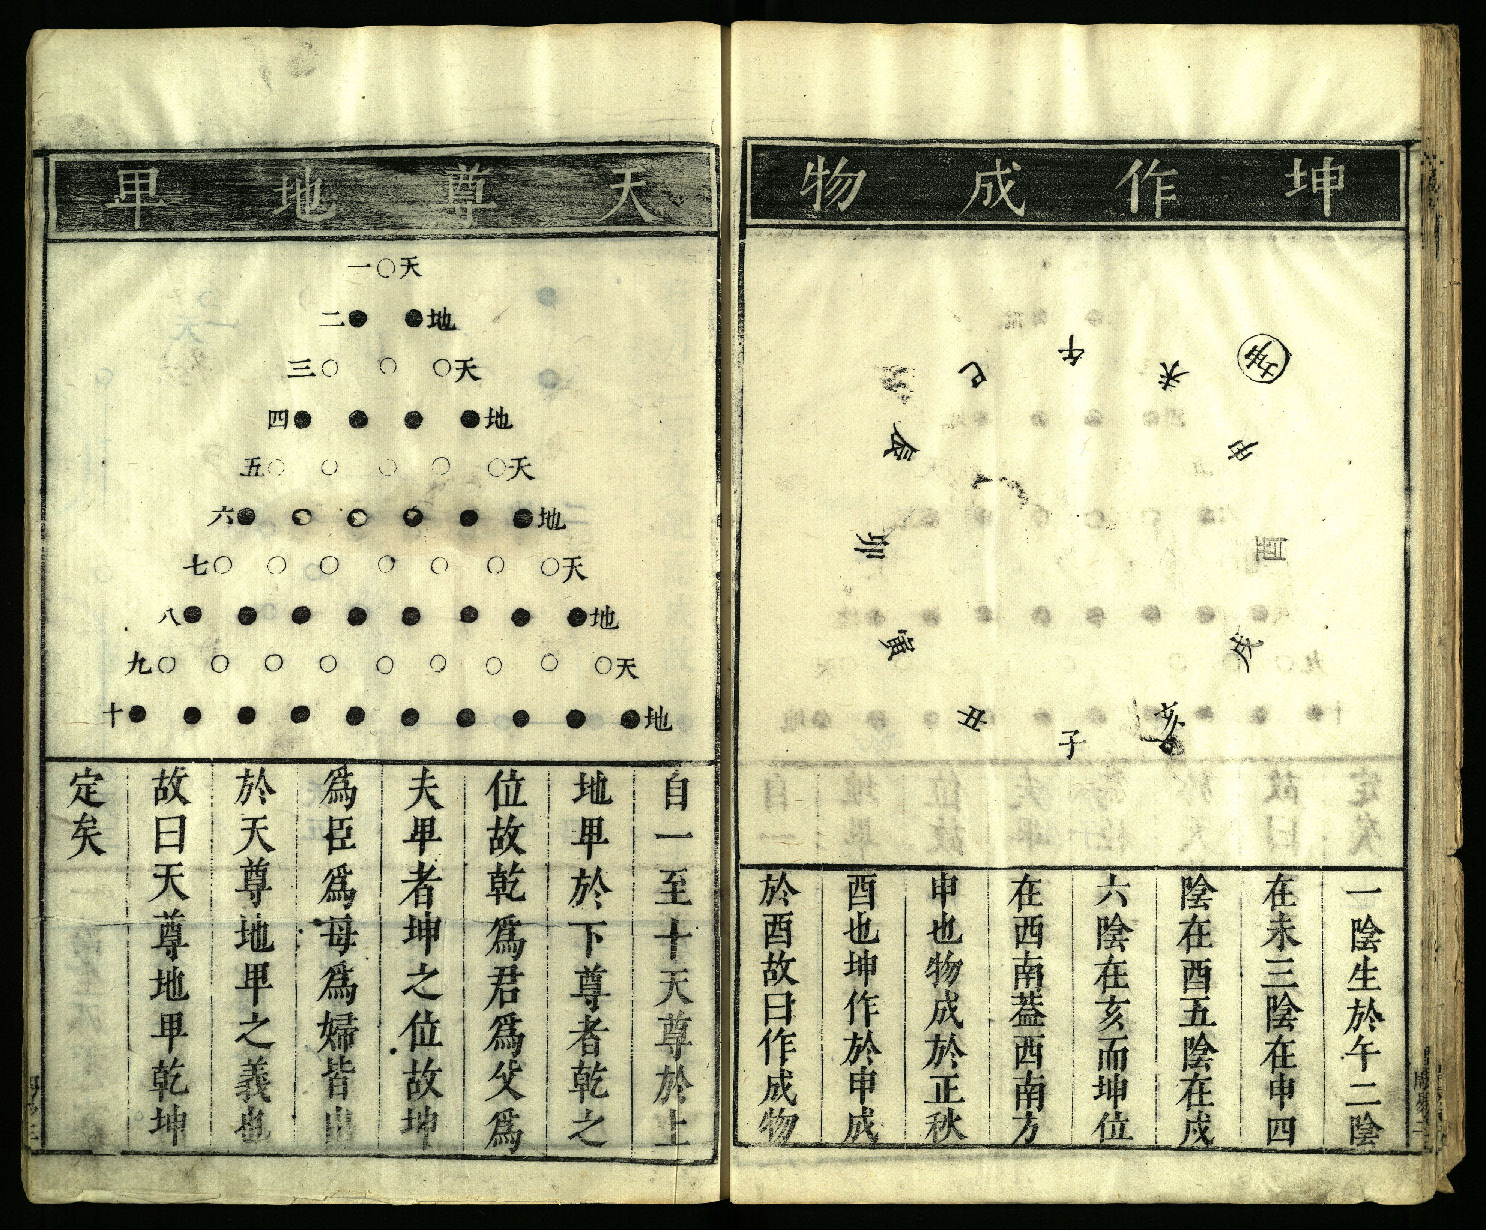 坤作成物
坤
未
午
巳
申
辰
酉
卯
戌
寅
亥
丑
子
一陰生於午二陰
在未三陰在申四
陰在酉五陰在戌
六陰在亥而坤位
在西南葢西南方
申也物成於正秋
酉也坤作於申成
於酉故曰作成物
天尊地甲
天一
地二
天三
地四
天五
地六
天七
地八
天九
地十
自一至十天尊於上
地甲於下尊者乾之
位故乾爲君爲父爲
夫甲者坤之位故坤
爲臣爲母爲婦皆出
於天尊地甲之義也
故曰天尊地甲乾坤
定矣